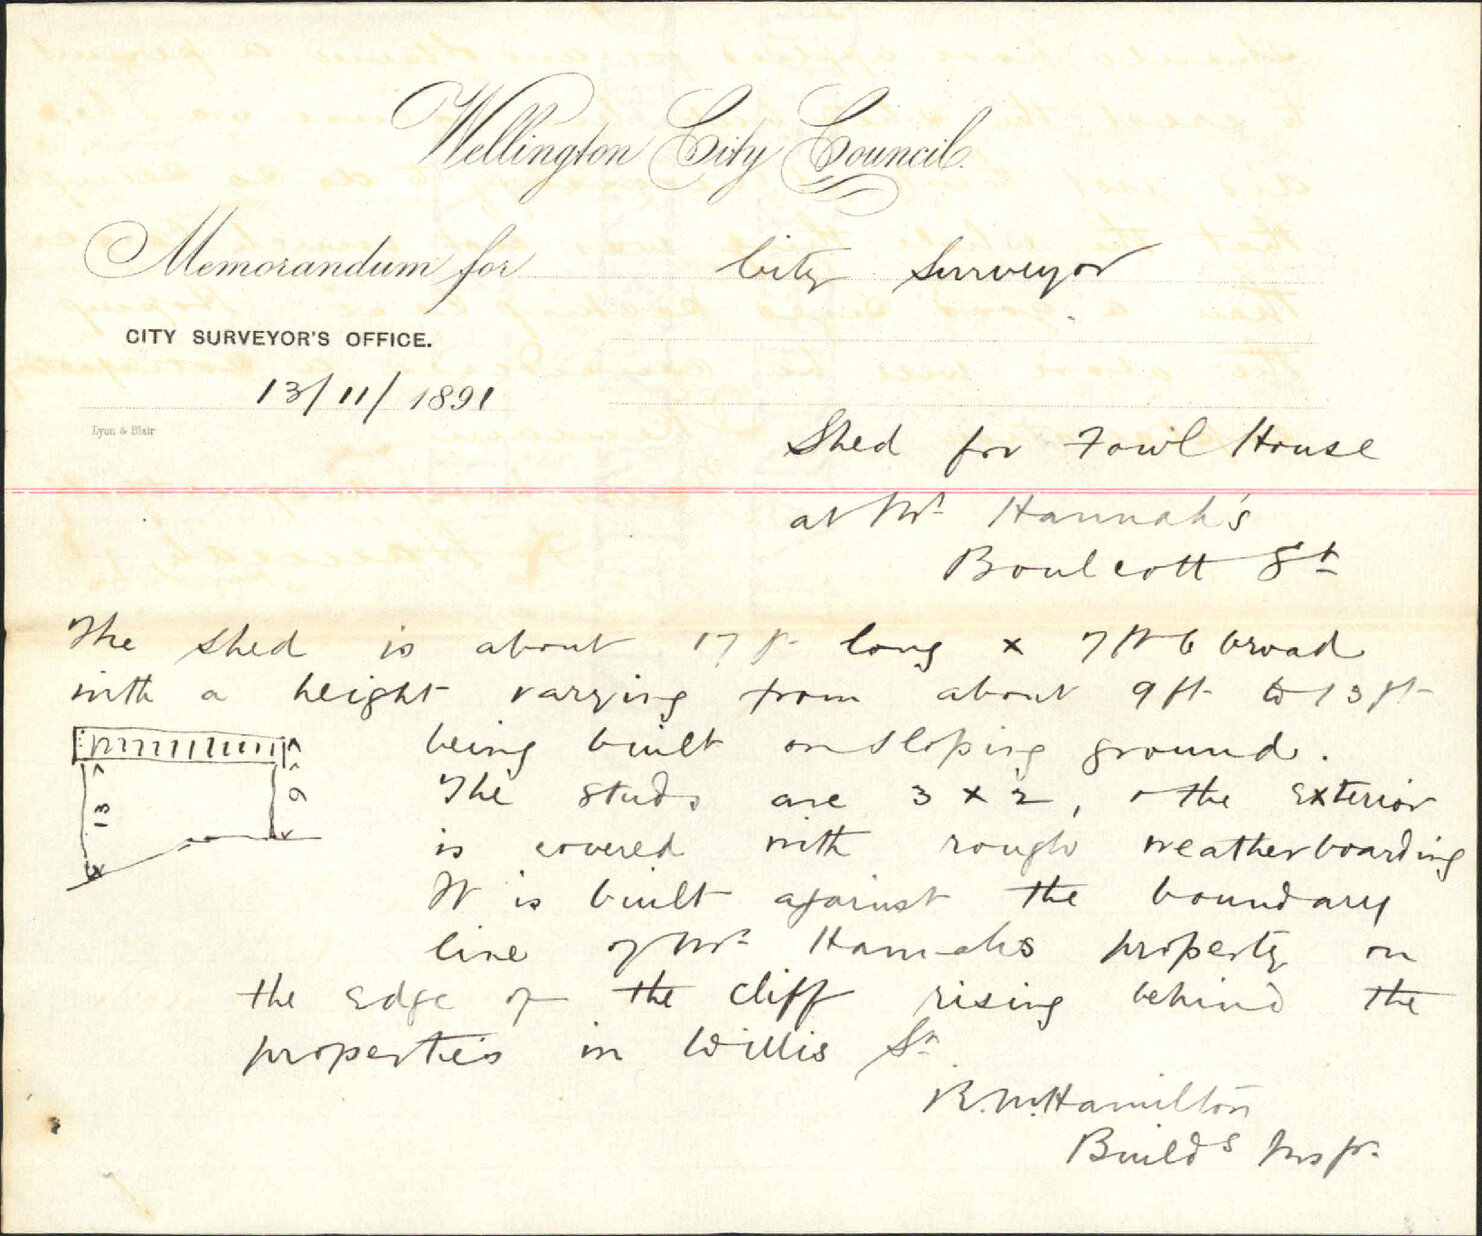 Wellington City Council.
Memorandum for City Surveyor
CITY SURVEYOR'S OFFICE.
13/11/1891
Lyon & Blair
Shed for Fowl House
at Mr Hannah's
Boulcott St
The shed is about 17 ft long x 7 ft 6 broad
with a height varying from about 9 ft to 13 ft
being built on sloping ground.
The studs are 3 x 2, & the exterior
is covered with rough weatherboarding
It is built against the boundary
line of Mr Hannahs property on
the edge of the cliff rising behind the
properties in Willis St
13
9
R. Mc Hamilton
Buildg Inspr.